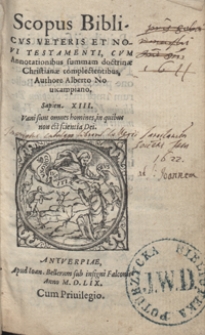 Scopus Bibli-
CVS VETERIS ET NO-
VI TESTAMENTI, CVM
Annotationibus summam doctrinæ
Christianæ complectentibus,
Authore Alberto No
uicampiano,
Sapien. XIII.
Vani sunt omnes homines, in quibus
non est scientia Dei.
1622
ANTVERPIAE,
Apud Ioan. Bellerum sub insigni Falconis
Anno M. D. LIX.
Cum Priuilegio.
BIBLIOTEKA
J.W.D.
POTURZYCKA